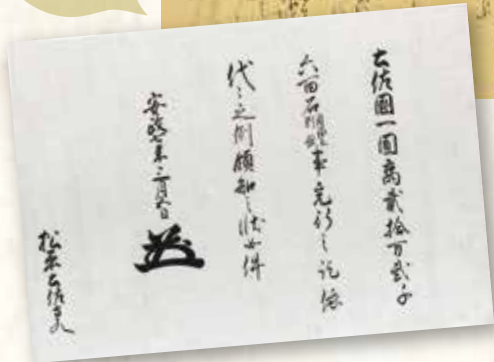 土佐國一圓高貳拾万貳千
六百石事充行之訖依
代々之例領知之状如件
安政七年三月五日
松平土佐守